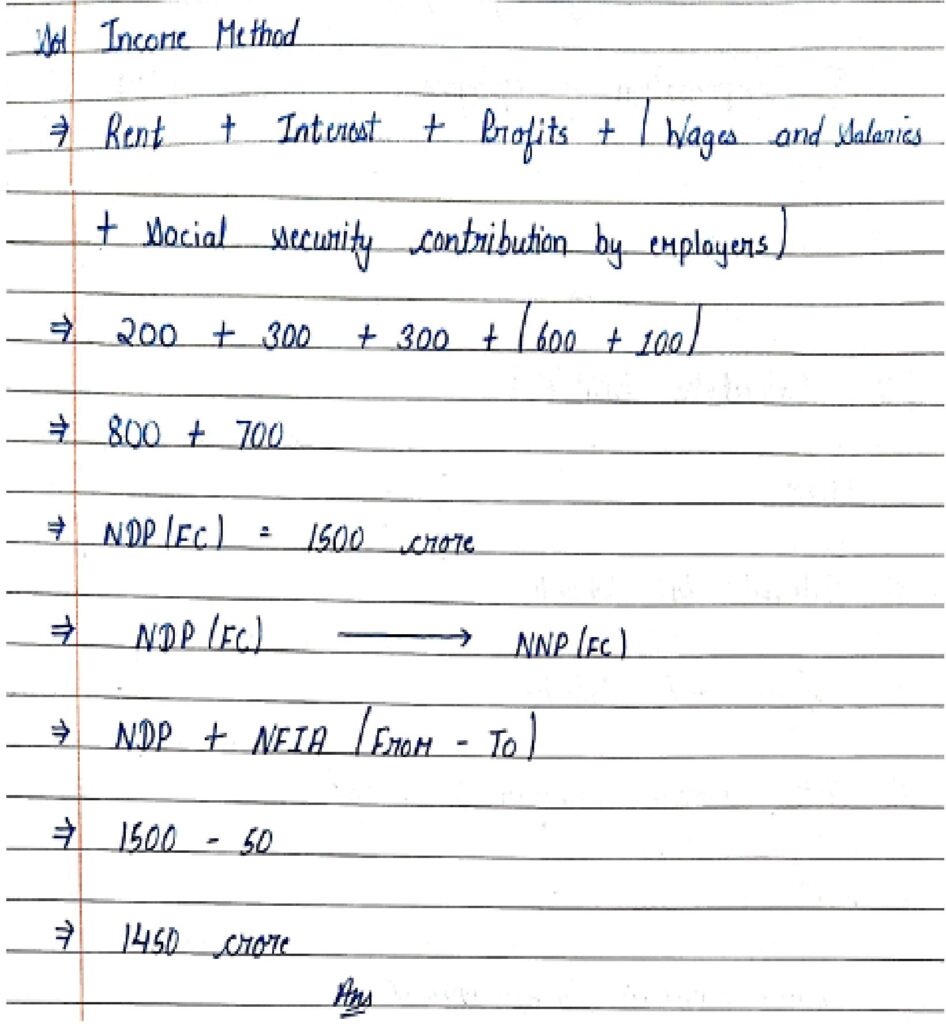 Sol Income Method
⇒ Rent + Interest + Profits + (Wages and Salaries
+ Social security contribution by employers)
⇒ 200 + 300 + 300 + (600 + 100)
⇒ 800 + 700
⇒ NDP (FC) = 1500 crore
⇒ NDP (FC) ⟶ NNP (FC)
⇒ NDP + NFIA (From - To)
⇒ 1500 - 50
⇒ 1450 crore
Ans